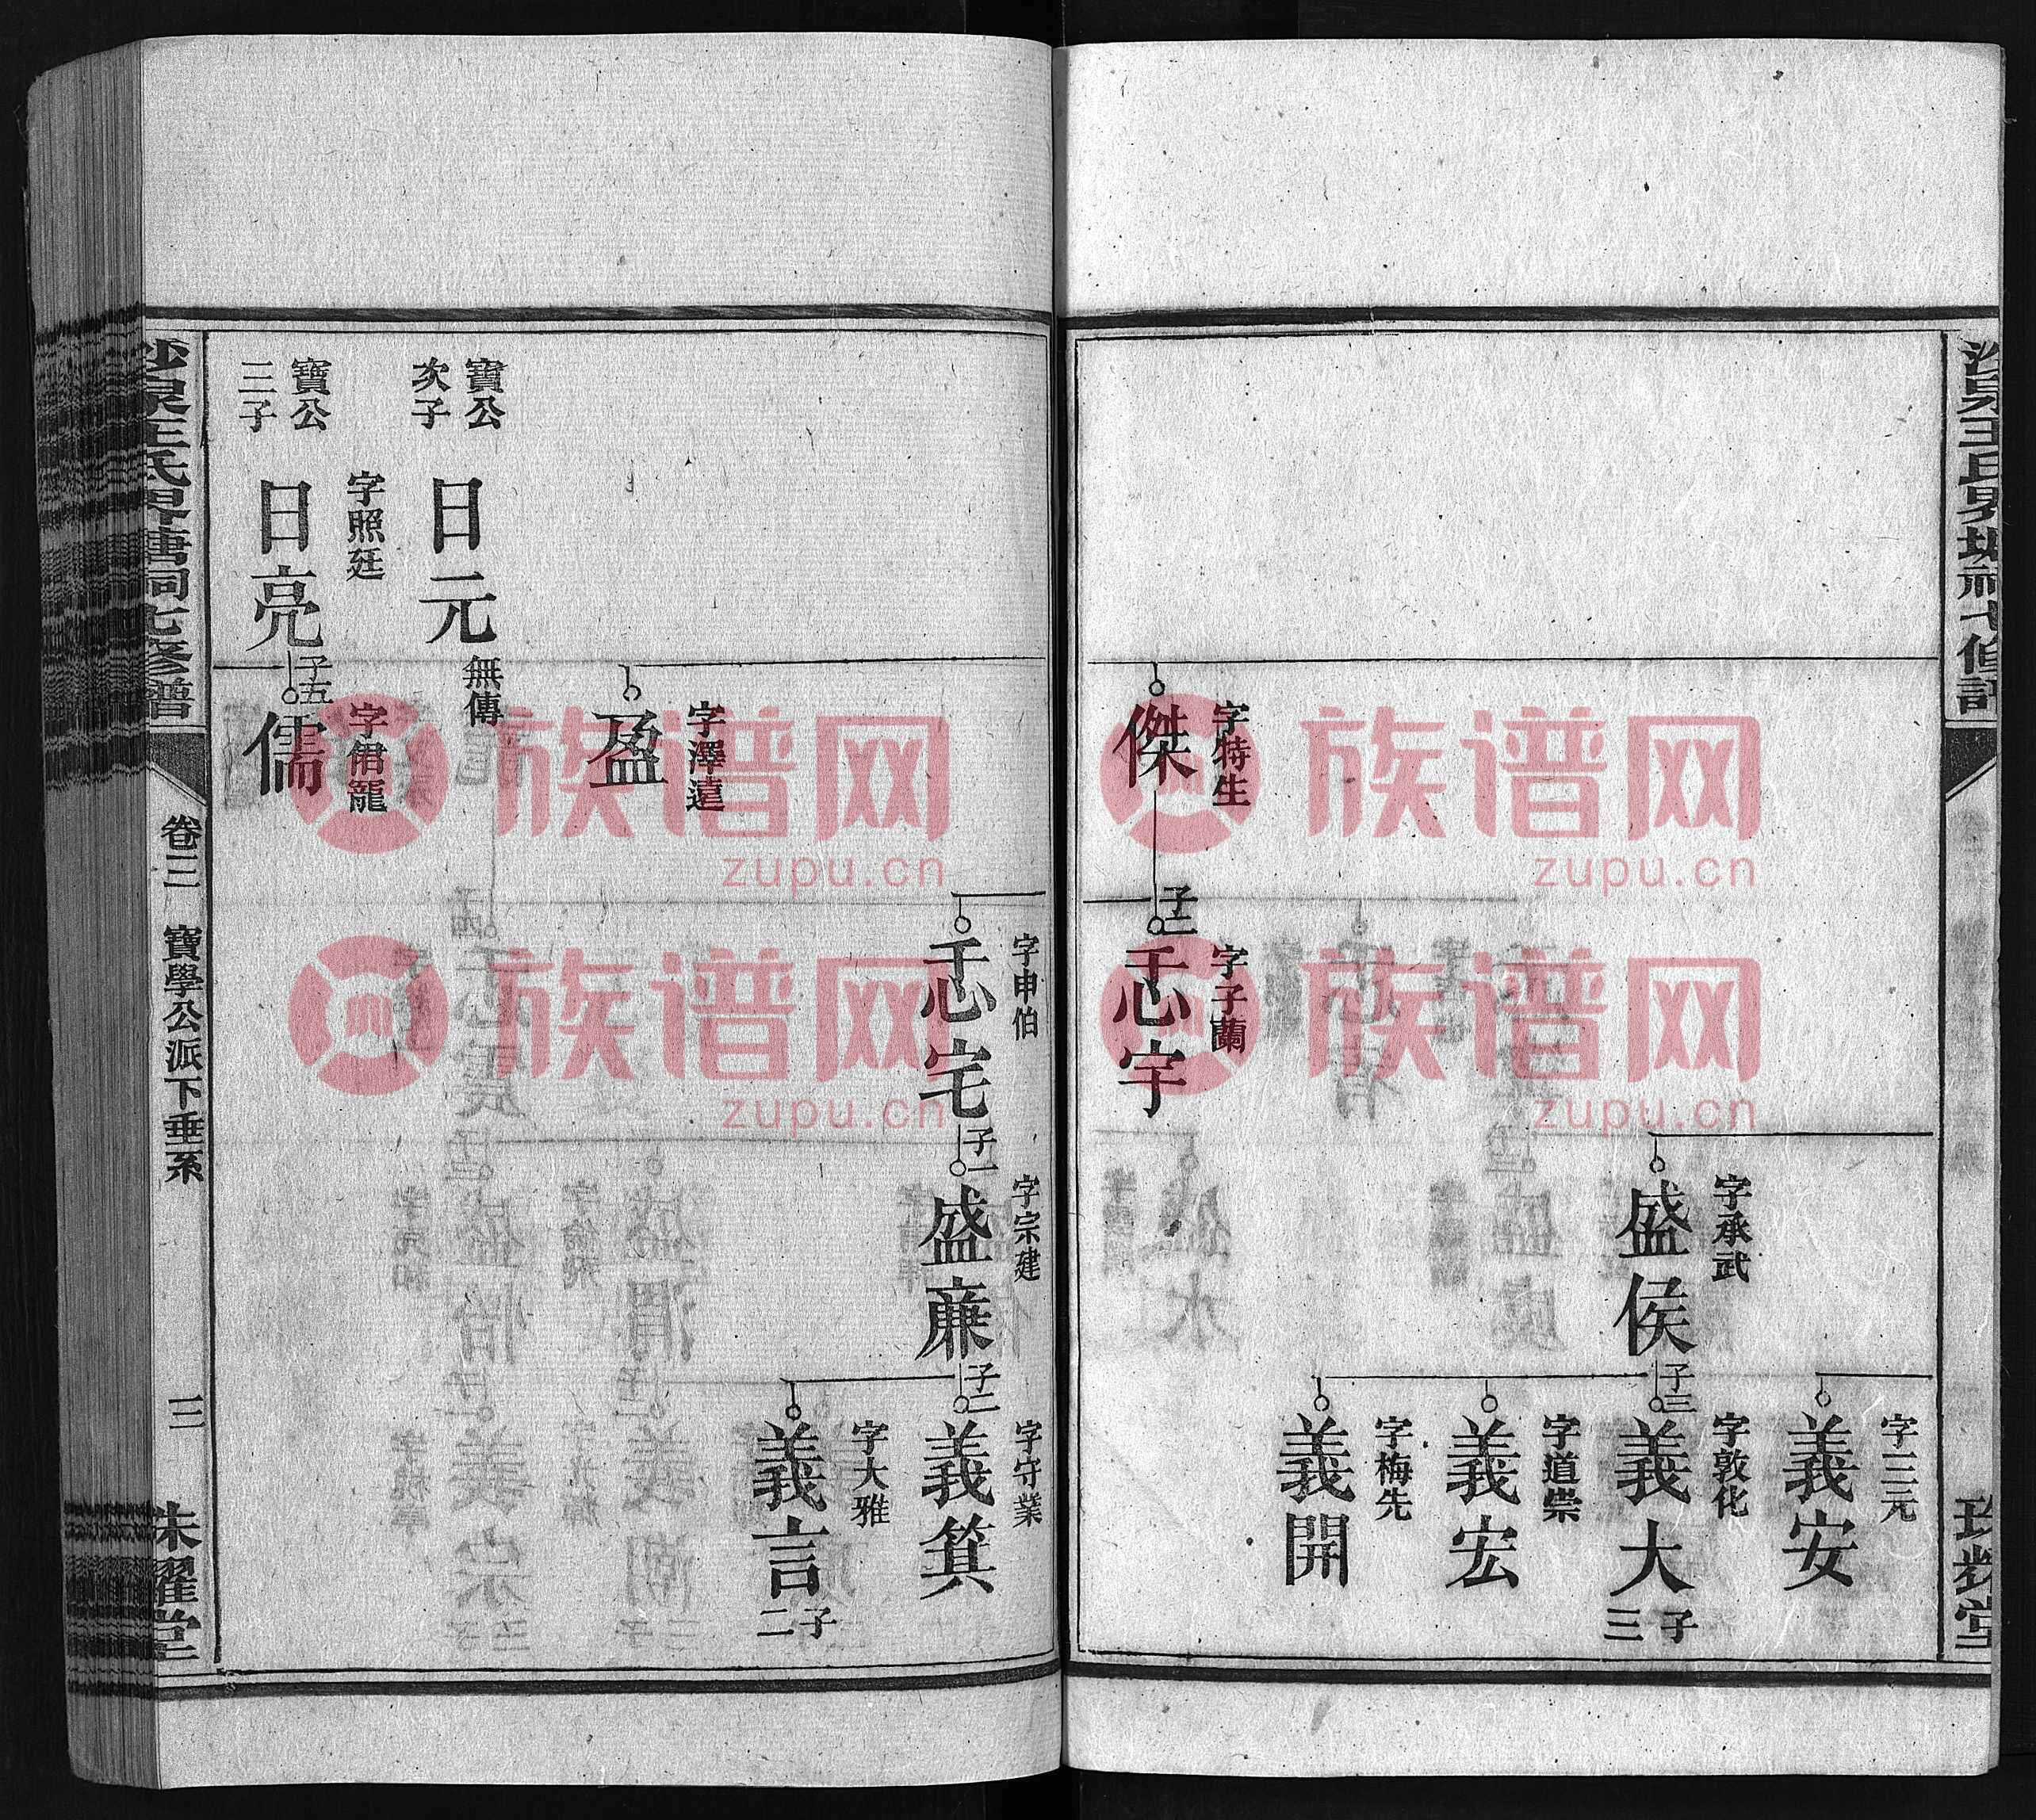 字特生
傑
子二
字子蘭
忎宇
字承武
盛侯
子三
字三元
義安
字敦化
義大
子三
字道崇
義宏
字梅先
義開
字申伯
忎宅
子一
字宗建
盛廉
子二
字守業
義箕
字大雅
義言
子二
字澤遠
盈
寶公
次子
日元
無傳
寶公
三子
字照廷
日亮
子五
字君寵
儒
沙泉王氏界塘祠七修譜
卷二
寶學公派下垂系
三
珠耀堂
族谱网
zupu.cn
族谱网
zupu.cn
族谱网
zupu.cn
族谱网
zupu.cn